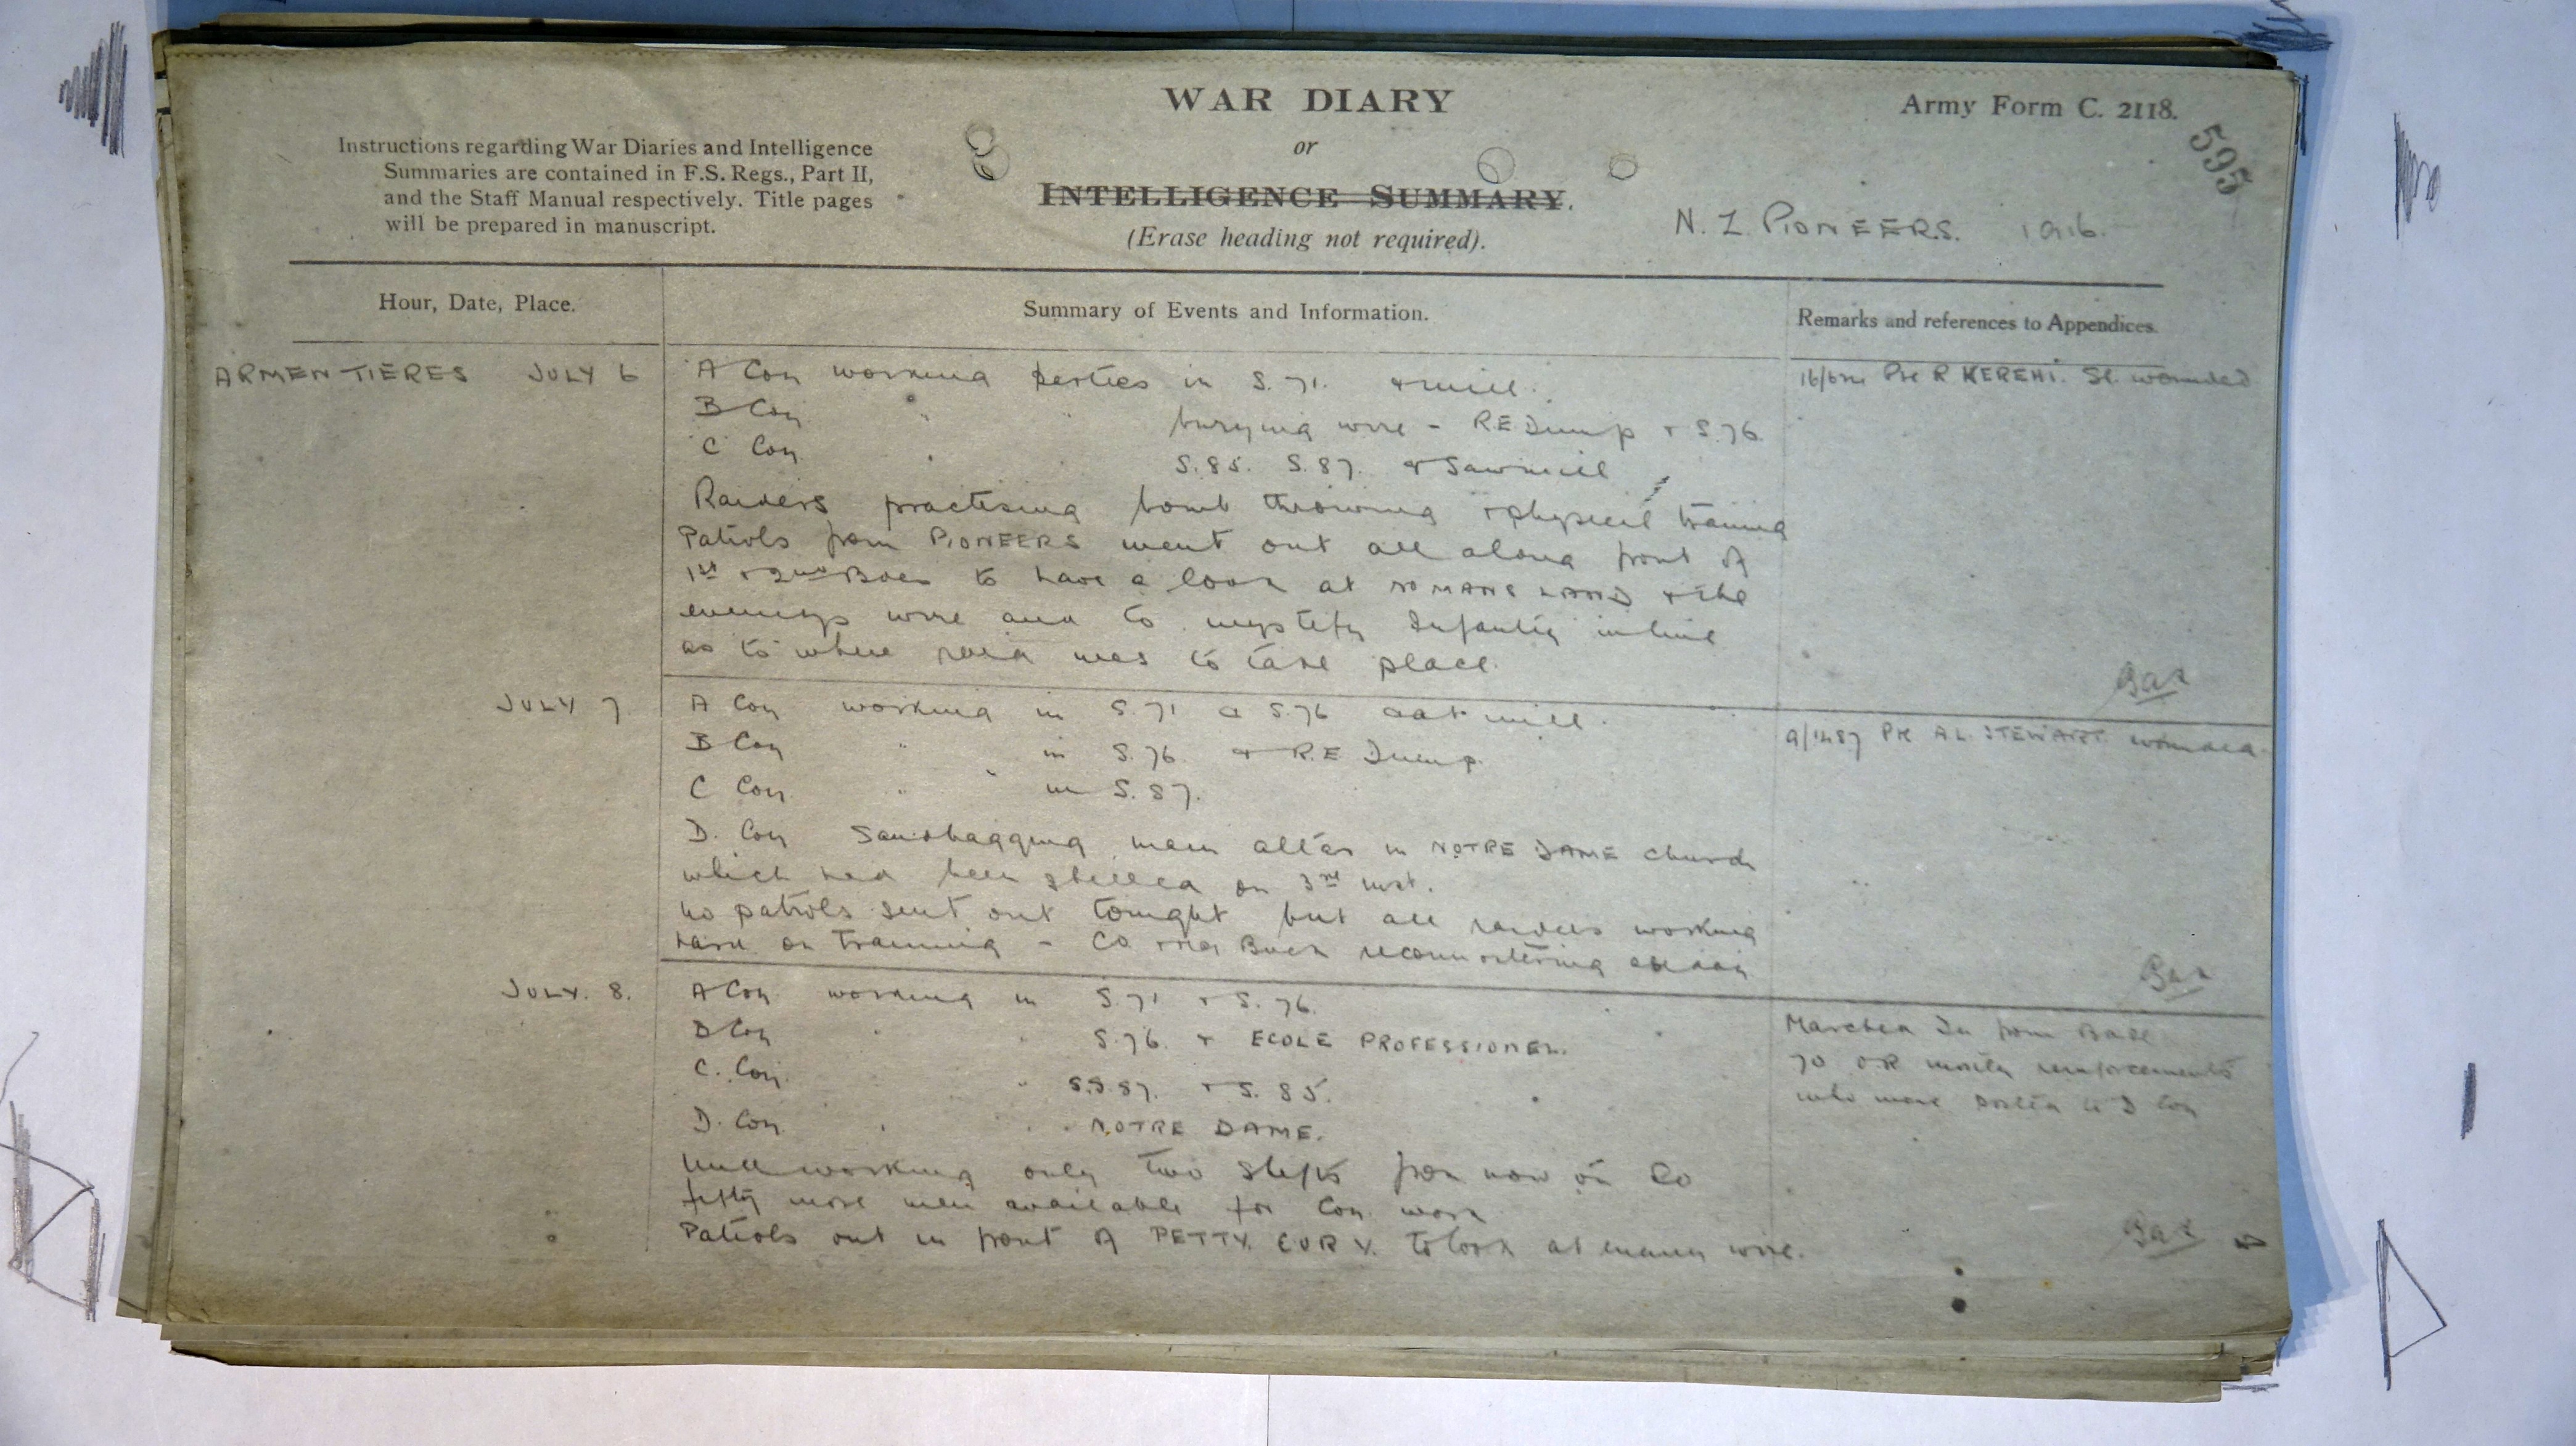 WAR DIARY
or
INTELLIGENCE SUMMARY.
(Erase heading not required).
Army Form C. 2118.
595
Instructions regarding War Diaries and Intelligence
Summaries are contained in F.S. Regs., Part II,
and the Staff Manual respectively. Title pages
will be prepared in manuscript.
N. Z. PIONEERS. 1916.
Hour, Date, Place.
Summary of Events and Information.
Remarks and references to Appendices.
ARMENTIERES JULY 6
A Coy working parties in S. 71. & mill.
B Coy " " burying wire - R.E Dump & S.76.
C Coy " " S.85. S.87. & Sawmill
Raiders practising bomb throwing & physical training
Patrols from PIONEERS went out all along front of
1st & 2nd Bdes to have a look at NOMANS LAND & the
enemys wire and to mystify Infantry in line
as to where raid was to take place.
Pte R KEREHI. Sl. wounded
JULY 7.
A Coy working in S.71 & S.76 & at mill.
B Coy " in S.76. & R.E. Dump.
C Coy " " in S.87.
D. Coy Sandbagging main altar in NOTRE DAME church
which had been shelled on 3rd inst.
No patrols sent out tonight but all raiders working
hard on training - CO & Buck reconnoitering
Pte A L. STEWART. wounded.
JULY. 8.
A Coy working in S.71 & S.76.
B Coy " " S.76. & ECOLE PROFESSIONEL.
C. Coy " " S.S.87. & S. 85.
D. Coy " " NOTRE DAME.
Mill working only two shifts from now on so
fifty more men available for Coy work
Patrols out in front of PETTY CURY. to look at enemy wire.
Marched In from Base
70 O.R mostly reinforcements
who were posted to D Coy